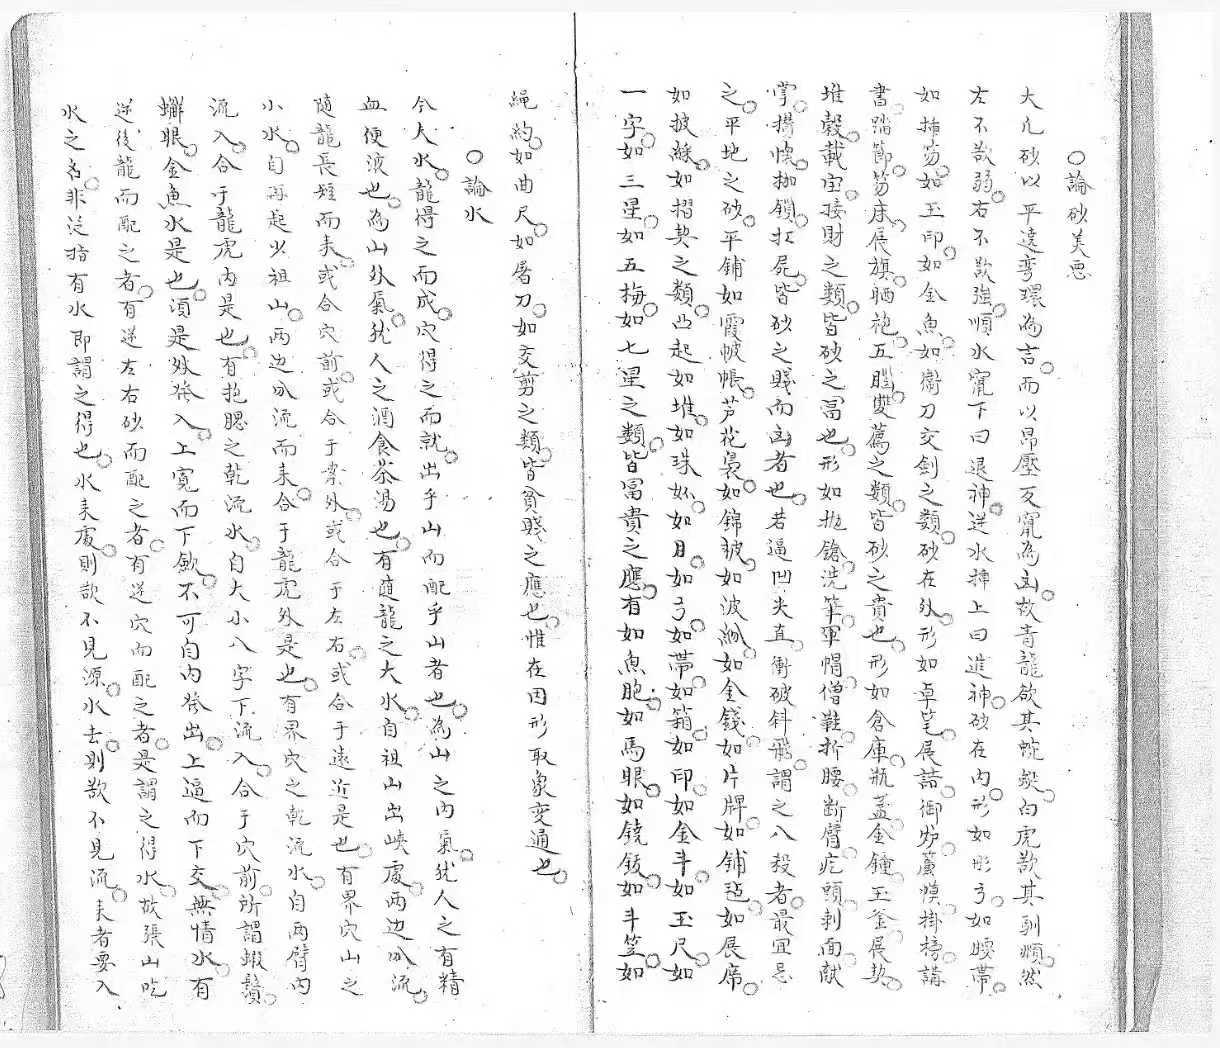 ○論砂美惡
大凡砂以平遠彎環為言○而以昂壓反竄為凶○故青龍欲其蛇蜿○白虎欲其馴頫○然
左不欲弱○右不欲強○順水竄下曰退神○逆水插上曰進神○砂在內○形如彤弓○如腰帶○
如插笏○如玉印○如金魚○如衙刀交劍之類○砂在外○形如卓笔○展誥○御炉○簾幙○掛榜○講
書○踏節○笏床○展旗○晒袍○五腦○雙薦之類○皆砂之貴也○形如倉庫○瓶盖○金鐘○玉釜○展契○
堆穀○載宝○接財之類○皆砂之冨也○形如拋鎗○洗筆○軍帽○僧鞋○折腰○断臂○疙頭○刺面○献
掌○攢懷○枷鎖○扛屍○皆砂之賤而凶者也○若逼凹尖直○衝破斜飛○謂之八殺者○最宜忌
之○平地之砂○平鋪如霞帔○帳○芦花裊○如錦被○如波㴬○如金錢○如片牌○如鋪毡○如展席○
如披蘇○如摺契之類○凸起如堆○如珠○如如月○如弓○如帶○如箱○如印○如金斗○如玉尺○如
一字○如三星○如五梅○如七星之類○皆冨貴之應○有如魚胞○如馬眼○如鐃鈸○如斗笠○如
繩約○如曲尺○如屠刀○如交剪之類○皆貧賤之應也○惟在因形取象变通也○
○論水
今夫水○龍得之而成○穴得之而就○出乎山而配乎山者也○為山之內氣○犹人之有精
血便液也○為山外氣○犹人之酒食茶湯也○有隨龍之大水○自祖山出峽處○两边分流○
隨龍長短而耒○或合穴前○或合于案外○或合于左右○或合于遠近是也○有界穴山之
小水○自再起少祖山○两边分流而耒○合于龍虎外是也○有界穴之乾流水○自两臂內
流入○合于龍虎內是也○有抱腮之乾流水○自大小八字下流入○合于穴前○所謂蝦鬚○
蠏眼○金魚水是也○須是外發入○上寛而下歛○不可自內發出○上逼而下交○無情水○有
逆後龍而配之者○有逆左右砂而配之者○有逆穴而配之者○是謂之得水○故張山吃
水之名○非泛指有水即謂之得也○水耒處則欲不見源○水去則欲不見流○耒者要入